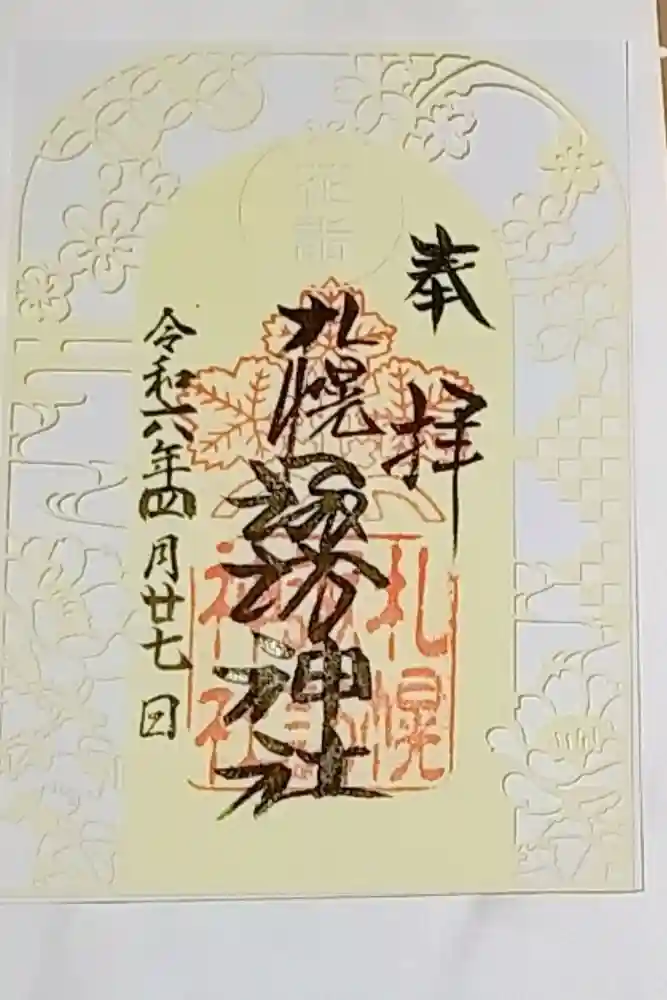 奉拝
札幌諏訪神社
令和六年四月廿七日
花詣
札幌
諏訪
神社